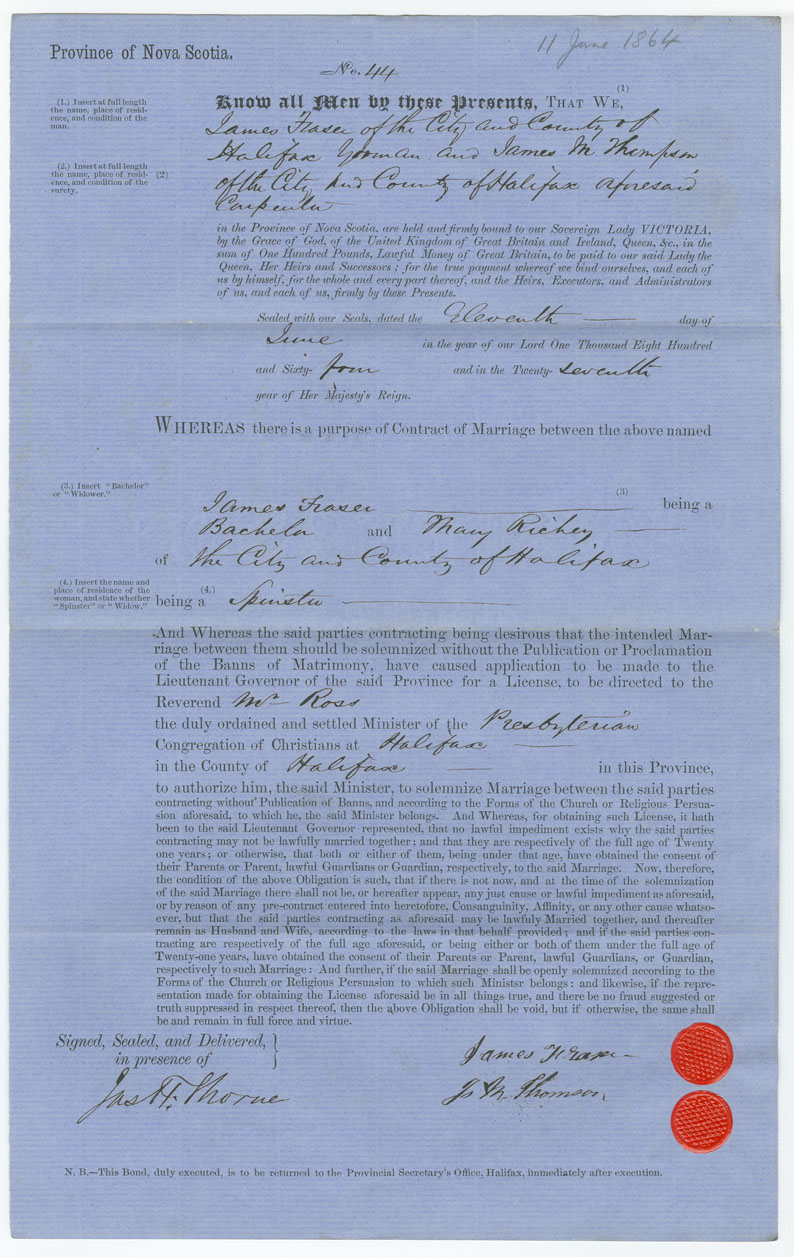 11 June 1864
Province of Nova Scotia.
No. 44
(1.) Insert at full length
the name, place of resid-
ence, and condition of the
man.
(1)
Know all Men by these Presents, THAT WE,
James Fraser of the City and County of
Halifax Yeoman and James M Thompson
(2.) Insert at full length
the name, place of resid-
ence, and condition of the
surety.
(2)
of the City and County of Halifax aforesaid
Carpenter
in the Province of Nova Scotia, are held and firmly bound to our Sovereign Lady VICTORIA,
by the Grace of God, of the United Kingdom of Great Britain and Ireland, Queen, &c., in the
sum of One Hundred Pounds, Lawful Money of Great Britain, to be paid to our said Lady the
Queen, Her Heirs and Successors; for the true payment whereof we bind ourselves, and each of
us by himself, for the whole and every part thereof, and the Heirs, Executors, and Administrators
of us, and each of us, firmly by these Presents.
Sealed with our Seals, dated the Eleventh day of
June in the year of our Lord One Thousand Eight Hundred
and Sixty- four and in the Twenty- seventh
year of Her Majesty's Reign.
WHEREAS there is a purpose of Contract of Marriage between the above named
(3.) Insert "Bachelor"
or "Widower."
(3)
James Fraser being a
Bachelor and Mary Richey
of the City and County of Halifax
(4.) Insert the name and
place of residence of the
woman, and state whether
"Spinster" or "Widow."
(4.)
being a Spinster
And Whereas the said parties contracting being desirous that the intended Mar-
riage between them should be solemnized without the Publication or Proclamation
of the Banns of Matrimony, have caused application to be made to the
Lieutenant Governor of the said Province for a License, to be directed to the
Reverend Mr Ross
the duly ordained and settled Minister of the Presbyterian
Congregation of Christians at Halifax
in the County of Halifax in this Province,
to authorize him, the said Minister, to solemnize Marriage between the said parties
contracting without Publication of Banns, and according to the Forms of the Church or Religious Persua-
sion aforesaid, to which he, the said Minister belongs. And Whereas, for obtaining such License, it hath
been to the said Lieutenant Governor represented, that no lawful impediment exists why the said parties
contracting may not be lawfully married together; and that they are respectively of the full age of Twenty
one years; or otherwise, that both or either of them, being under that age, have obtained the consent of
their Parents or Parent, lawful Guardians or Guardian, respectively, to the said Marriage. Now, therefore,
the condition of the above Obligation is such, that if there is not now, and at the time of the solemnization
of the said Marriage there shall not be, or hereafter appear, any just cause or lawful impediment as aforesaid,
or by reason of any pre-contract entered into heretofore, Consanguinity, Affinity, or any other cause whatso-
ever, but that the said parties contracting as aforesaid may be lawfuly Married together, and thereafter
remain as Husband and Wife, according to the laws in that behalf provided; and if the said parties con-
tracting are respectively of the full age aforesaid, or being either or both of them under the full age of
Twenty-one years, have obtained the consent of their Parents or Parent, lawful Guardians, or Guardian,
respectively to such Marriage: And further, if the said Marriage shall be openly solemnized according to the
Forms of the Church or Religious Persuasion to which such Ministsr belongs: and likewise, if the repre-
sentation made for obtaining the License aforesaid be in all things true, and there be no fraud suggested or
truth suppressed in respect thereof, then the above Obligation shall be void, but if otherwise, the same shall
be and remain in full force and virtue.
Signed, Sealed, and Delivered,
in presence of
James Fraser
Jas H. Thorne
Js M Thomson
N. B.—This Bond, duly executed, is to be returned to the Provincial Secretary's Office, Halifax, immediately after execution.